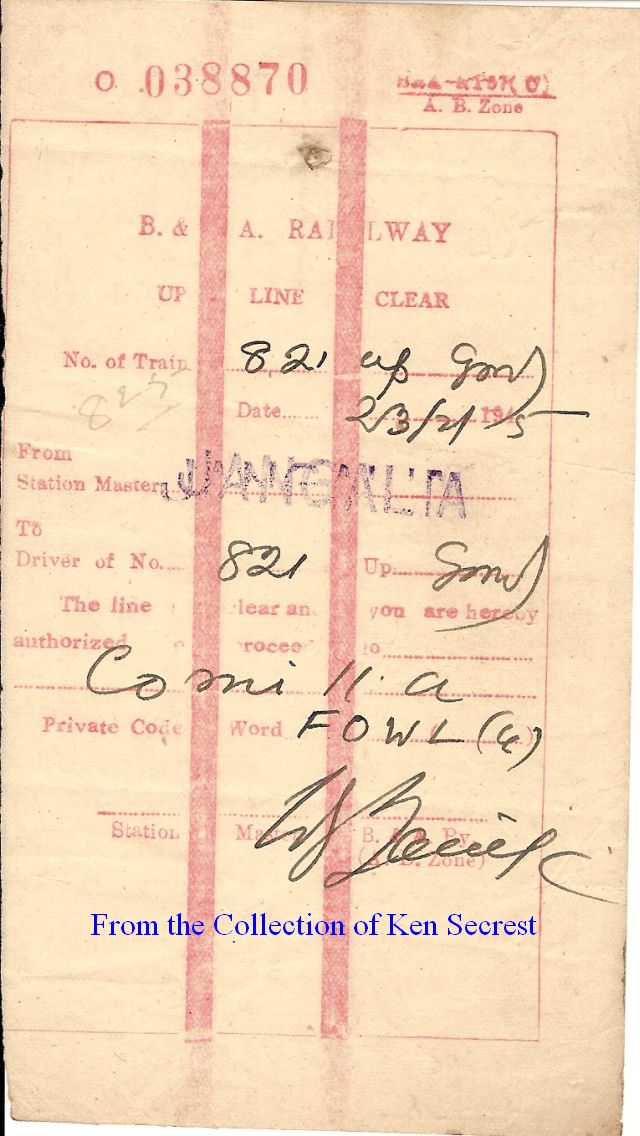 O 038870
A. B. Zone
B. & A. RAILWAY
UP LINE CLEAR
No. of Train 821 up
825
Date...... 23/2/ 1945
From
Station Master,
To
Driver of No.... 821 Up
The line lear an you are hereby
authorized rocee to
Comilla
Private Code Word FOWL (4)
Station Maste B. & A. Ry.
(A. B. Zone)
From the Collection of Ken Secrest